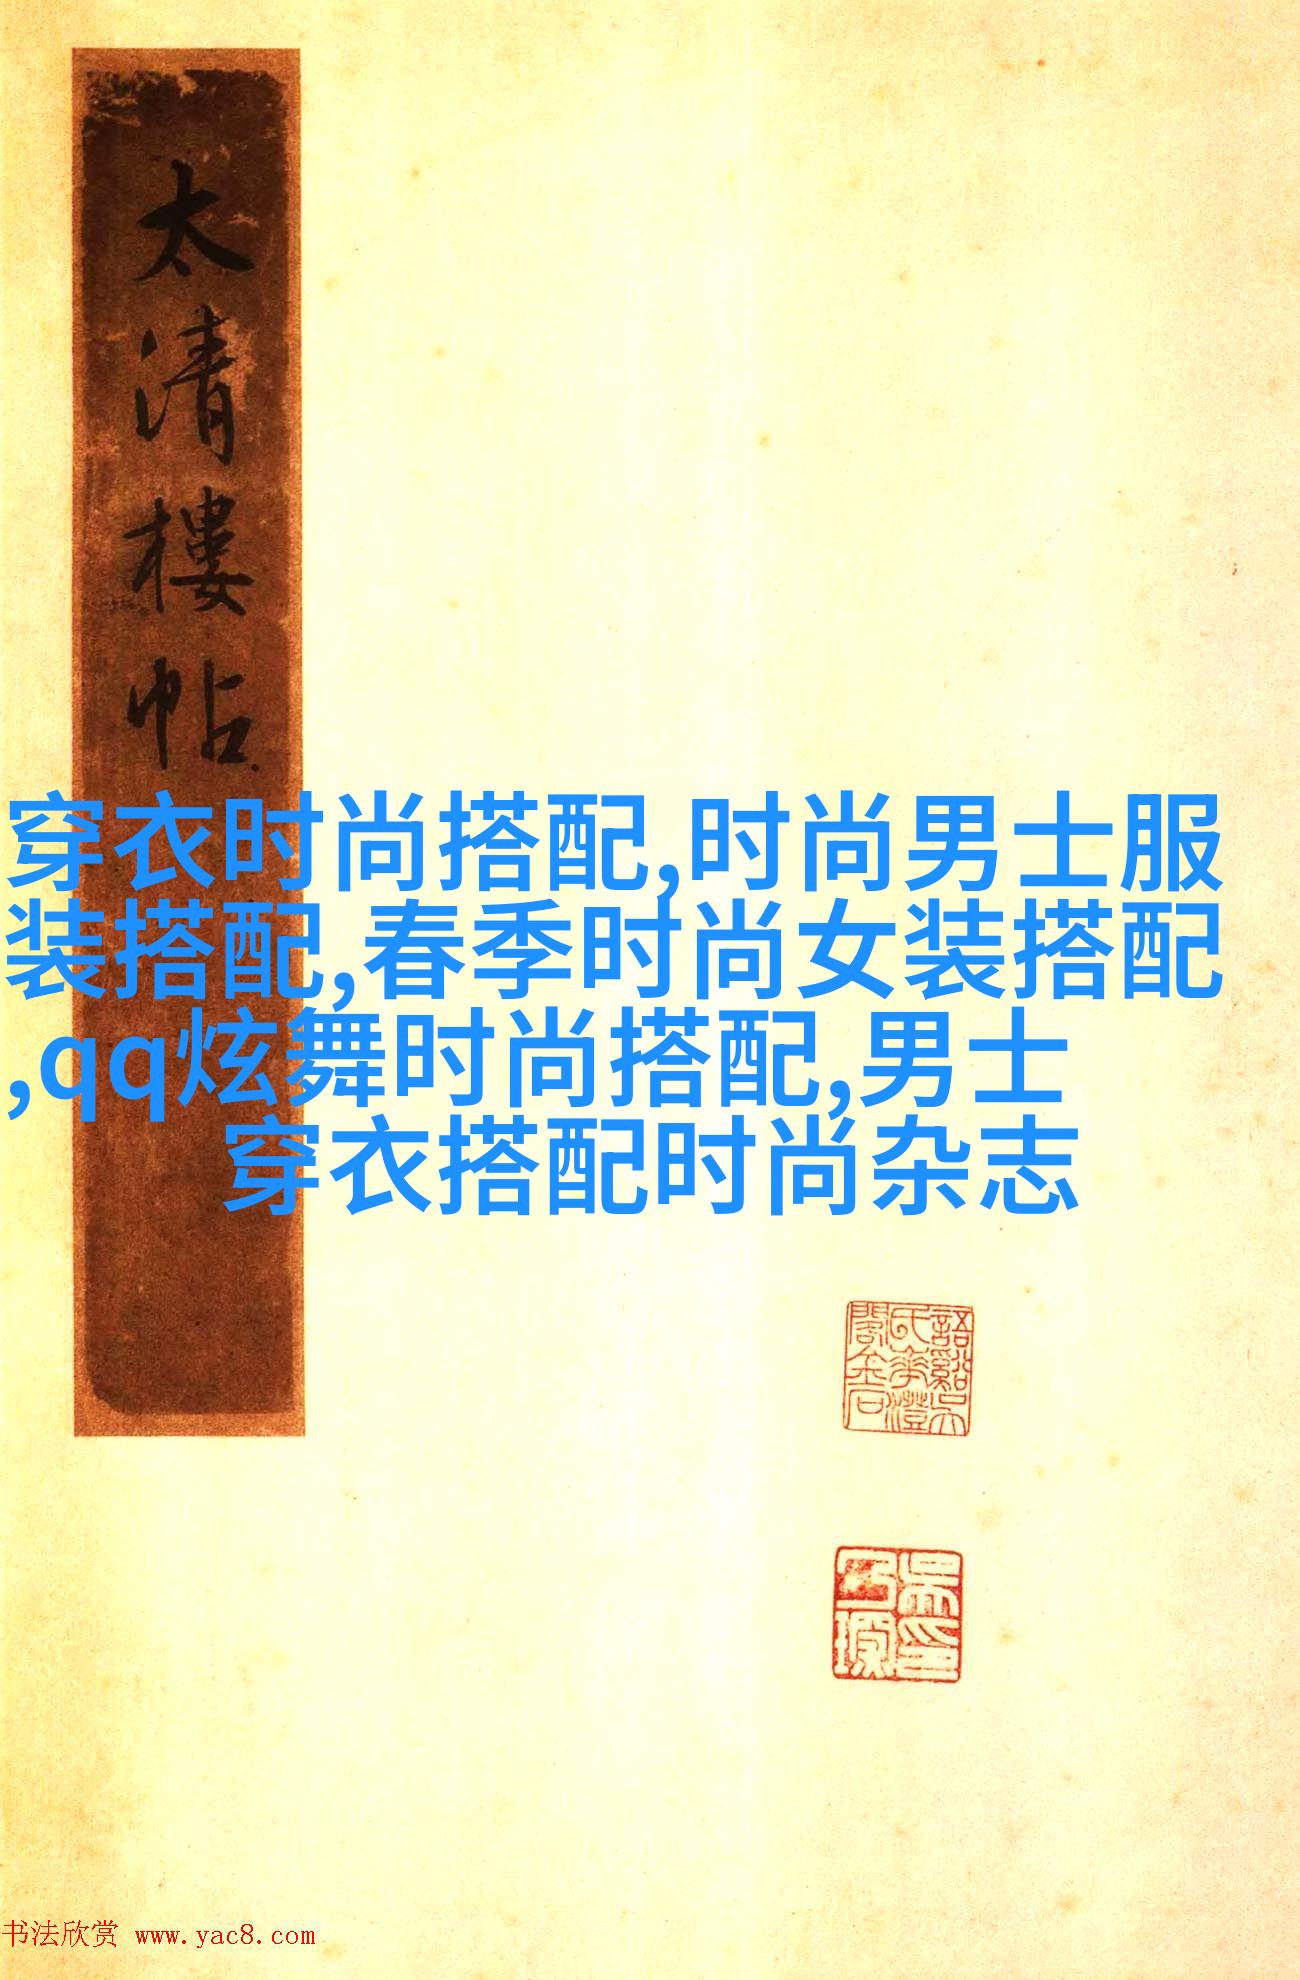 太清樓帖
穿衣时尚搭配,时尚男士服
装搭配,春季时尚女装搭配
,qq炫舞时尚搭配,男士
穿衣搭配时尚杂志
书法欣赏 www.yac8.com